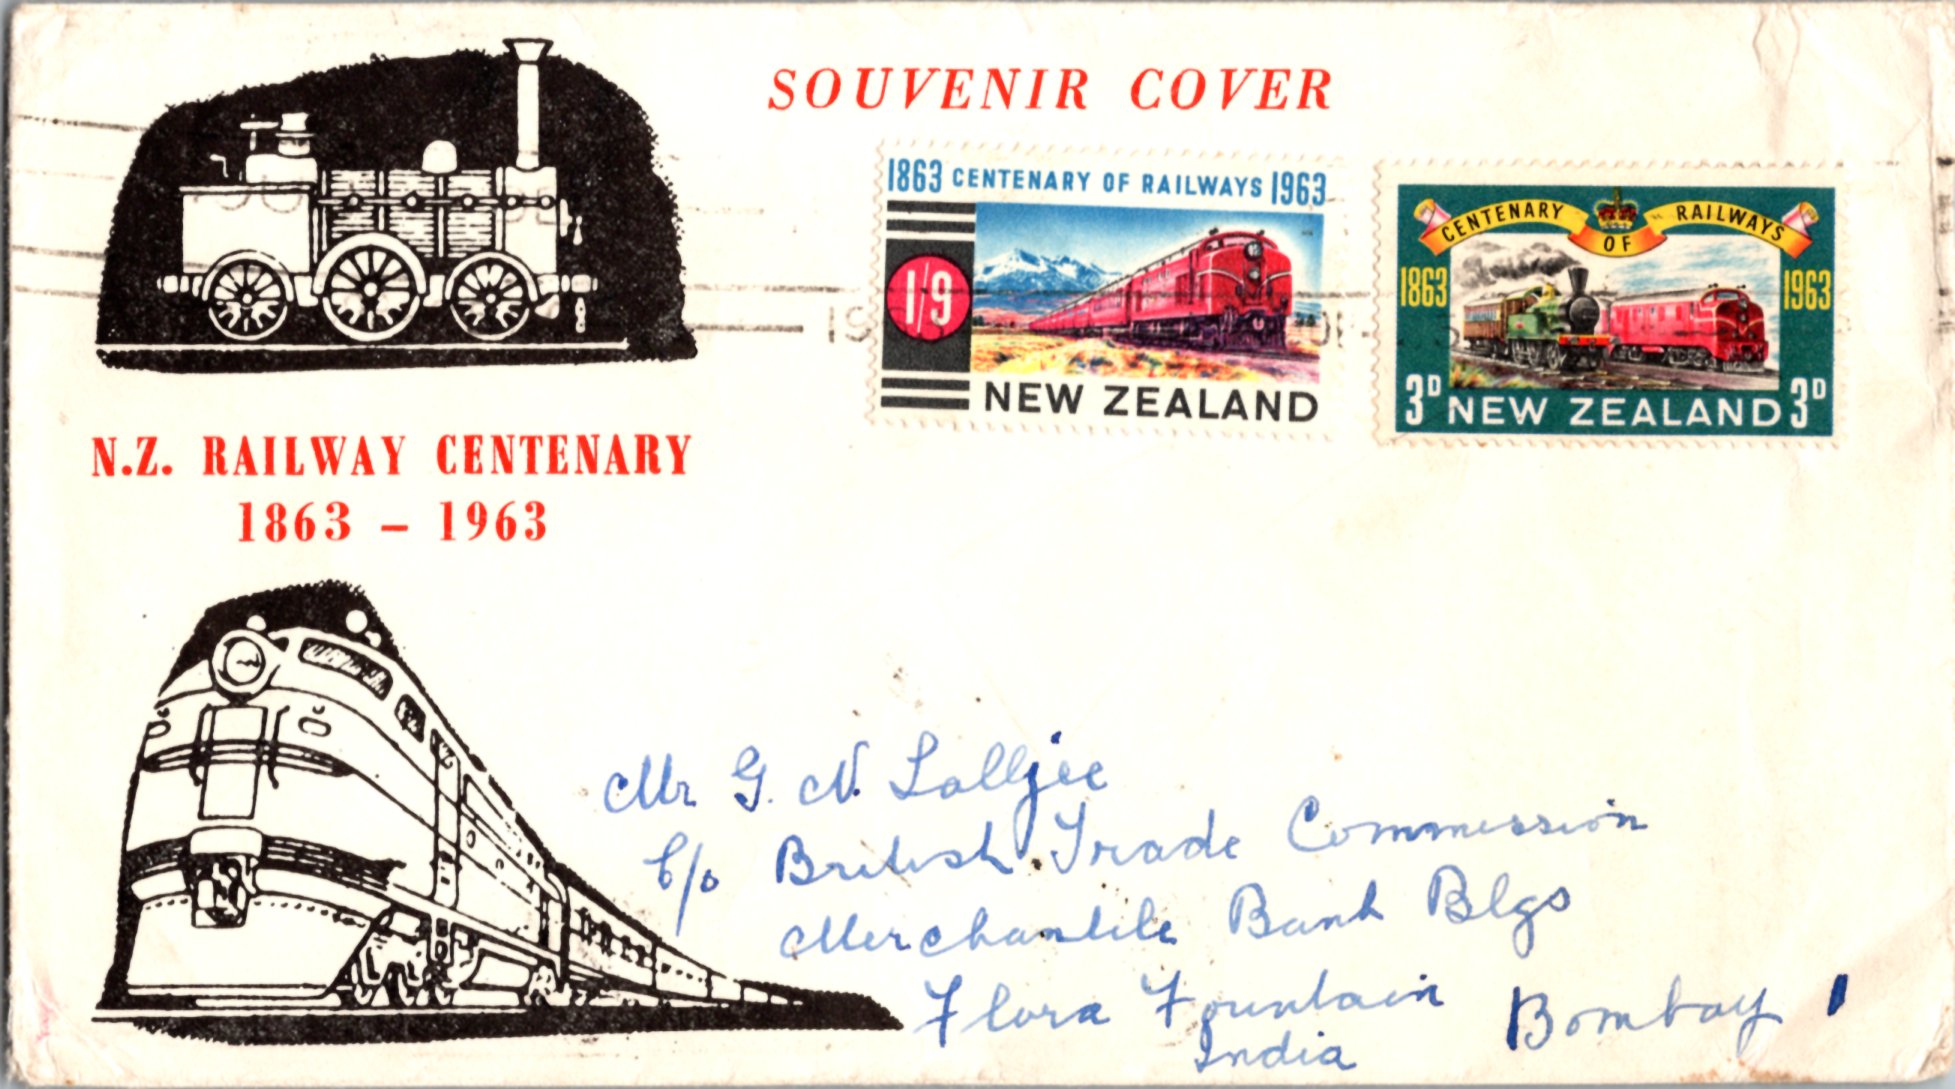 SOUVENIR COVER
1863 CENTENARY OF RAILWAYS 1963
1/9
NEW ZEALAND
CENTENARY OF RAILWAYS
1863 1963
3D NEW ZEALAND 3D
N.Z. RAILWAY CENTENARY
1863 – 1963
Mr G. N. Lalljee
C/o British Trade Commission
Merchantile Bank Blgs
Flora Fountain Bombay 1
India